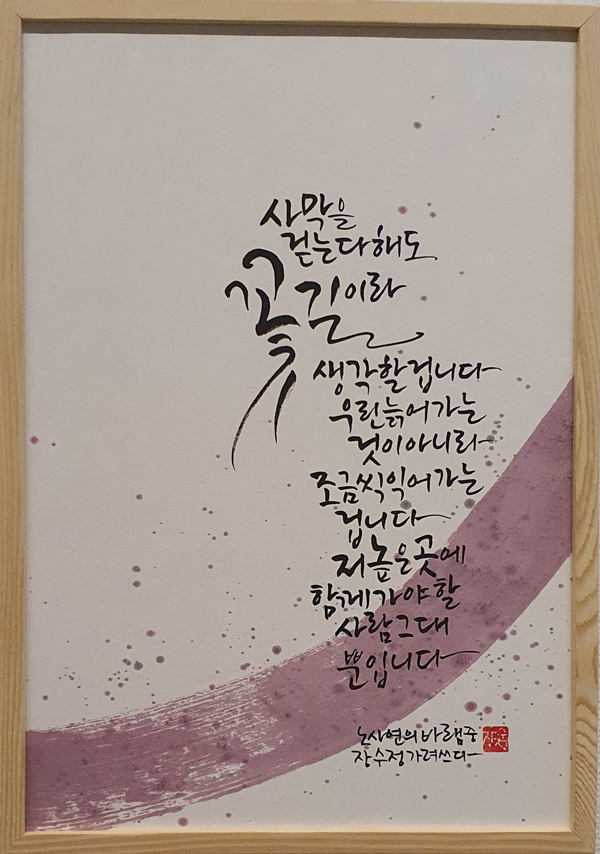 사막을
걷는다해도
꽃길이라
생각할겁니다
우린늙어가는
것이아니라
조금씩익어가는
겁니다
저높은곳에
함께가야할
사람그대
뿐입니다
노사연의바램중
장수정가려쓰다